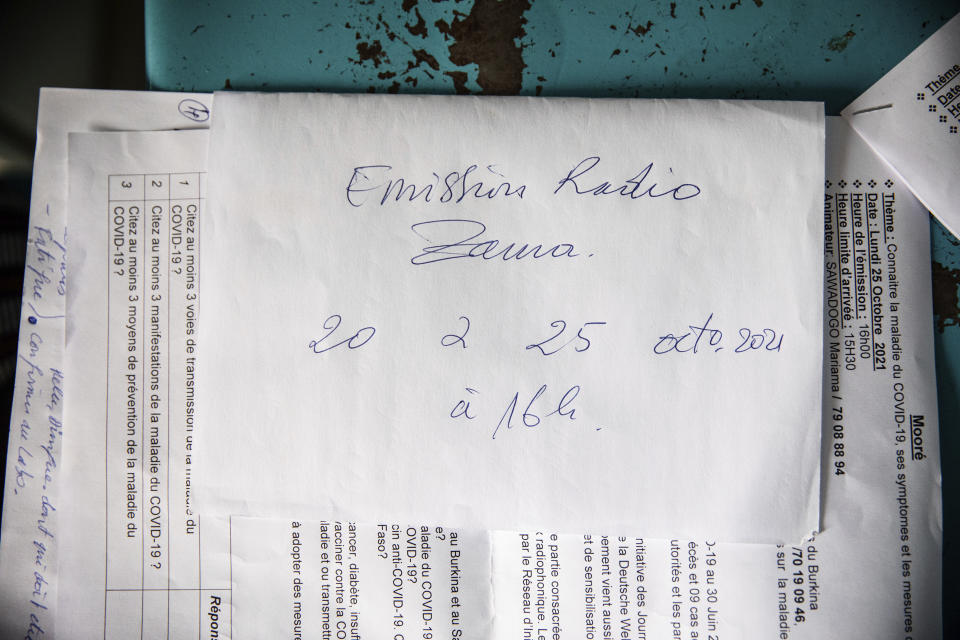 Emission Radio
Zama.
20 2 25 octo. 2021
à 16h.
Mooré
❖ Thème : Connaitre la maladie du COVID-19, ses symptomes et les mesures
❖ Date : Lundi 25 Octobre 2021
❖ Heure de l'émission : 16h00
❖ Heure limite d'arrivée : 15H30
❖ Animateur: SAWADOGO Mariama / 79 08 88 94
Thème
Date
He
1 Citez au moins 3 voies de transmission de la maladie du
COVID-19 ?
2 Citez au moins 3 manifestations de la maladie du COVID-19 ?
3 Citez au moins 3 moyens de prévention de la maladie du
COVID-19 ?
Répon
s du Burkina
/70 19 09 46,
s sur la maladie
0-19 au 30 Juin
écès et 09 cas a
utorités et les pa
nitiative des Jour
e la Deutsche Wel
pement vient aussi
et de sensibilisatio
e partie consacrée
radiophonique. Le
par le Réseau d'Ini
au Burkina et au Sa
e?
aladie du COVID-1
OVID-19?
cin anti-COVID-19. C
Faso?
cancer, diabète, insuf
vacciner contre la CO
ladie et ou transmettr
à adopter des mesure
- Fatigue
confirmer au labo.